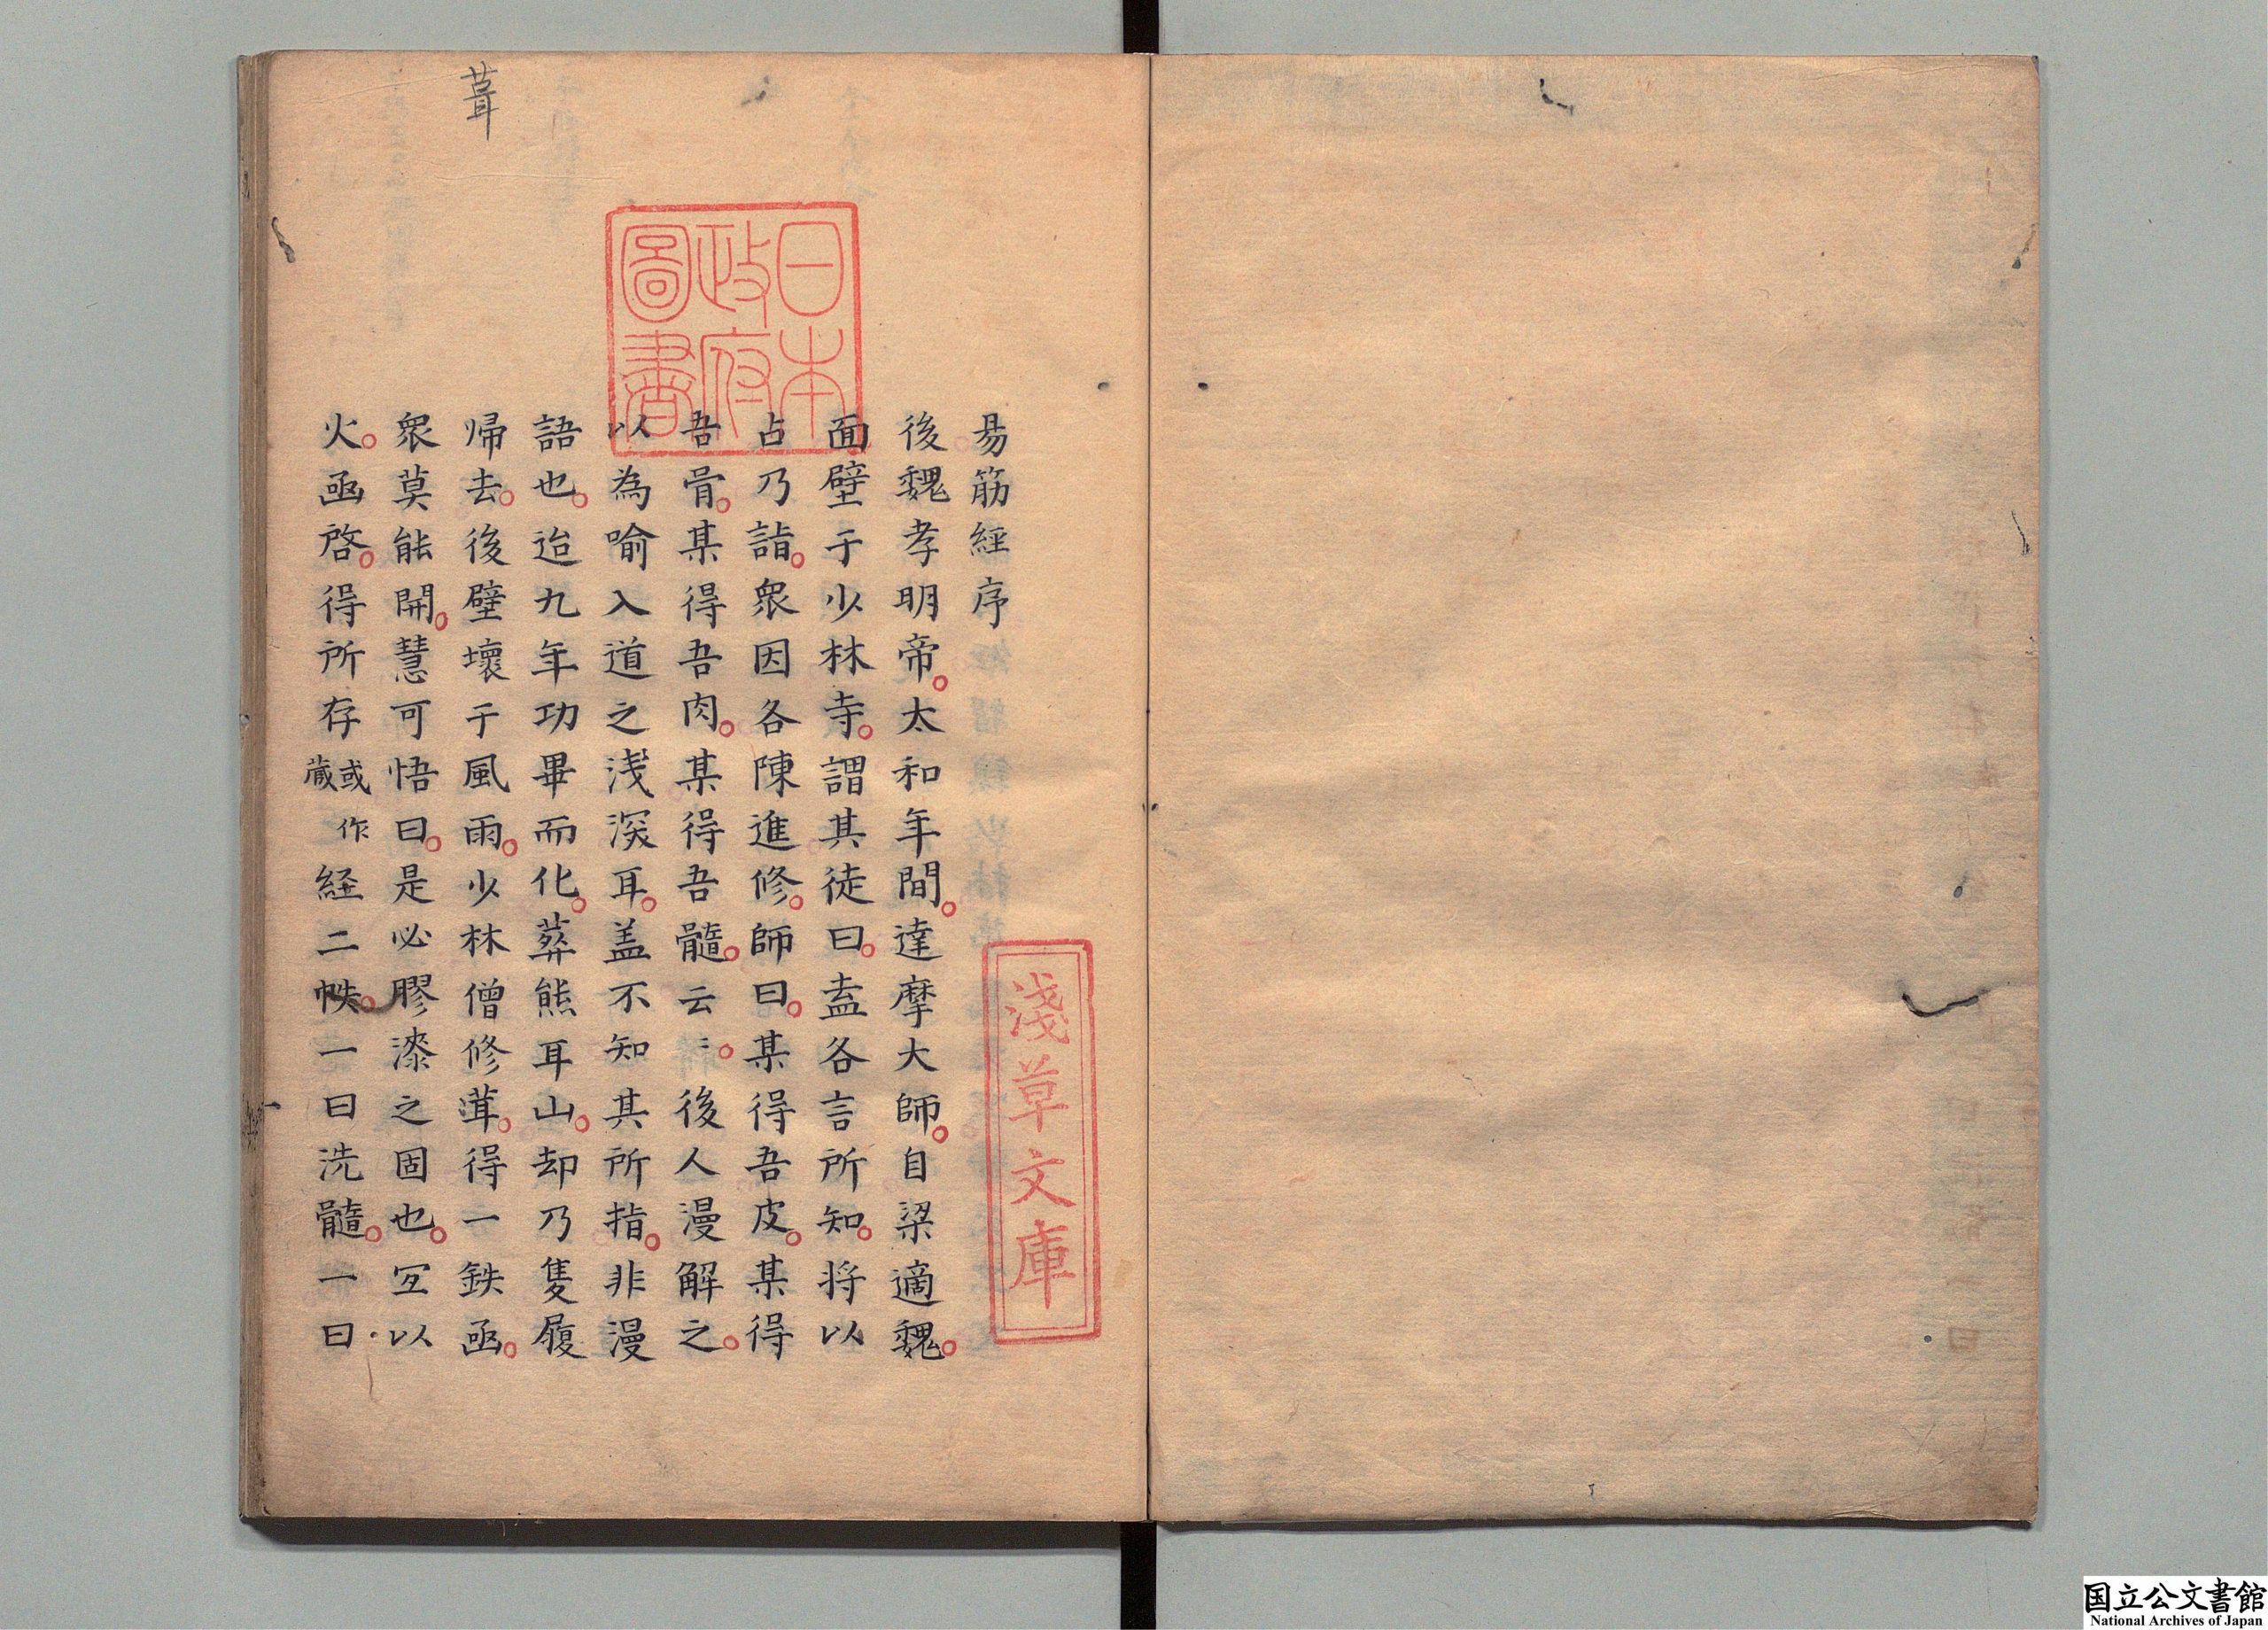 易筋經序
後魏孝明帝。太和年間。達摩大師。自梁適魏。
面壁于少林寺。謂其徒曰。盍各言所知。将以
占乃詣。衆因各陳進修。師曰。某得吾皮。某得
吾骨。某得吾肉。某得吾髓。云〻。後人漫解之。
以為喻入道之浅深耳。盖不知其所指。非漫
語也。迨九年功畢而化。葬熊耳山。却乃隻履
帰去。後壁壞于風雨。少林僧修葺。得一鉄凾。
衆莫能開。慧可悟曰。是必膠漆之固也。冝以
火。凾啓。得所存或作藏経二帙。一曰洗髓。一曰
葺
日本政府圖書
淺草文庫
国立公文書館
National Archives of Japan